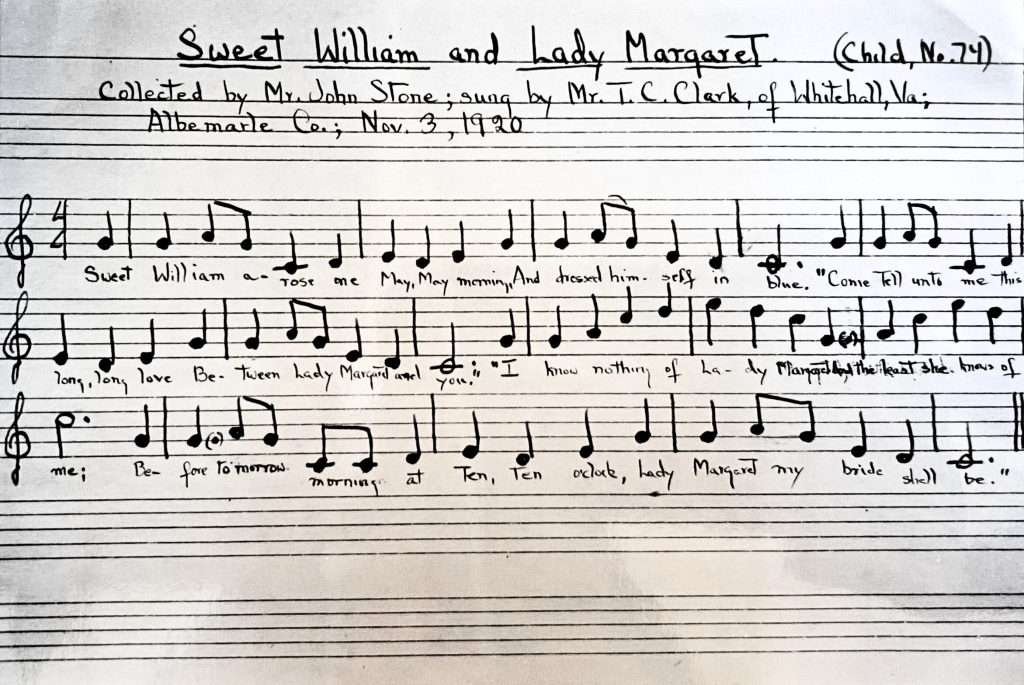 Sweet William and Lady Margaret. (Child, No. 74)
Collected by Mr. John Stone; sung by Mr. T. C. Clark, of Whitehall, Va;
Albemarle Co.; Nov. 3, 1920
4
4
Sweet William a- rose one May, May morning, And dressed him- self in blue. "Come tell unto me this
long, long love Be- tween Lady Margret and you." "I know nothing of La- dy Margaret the least she knows of
me; Be- fore tomorrow morning at Ten, Ten oclock, Lady Margaret my bride shall be."